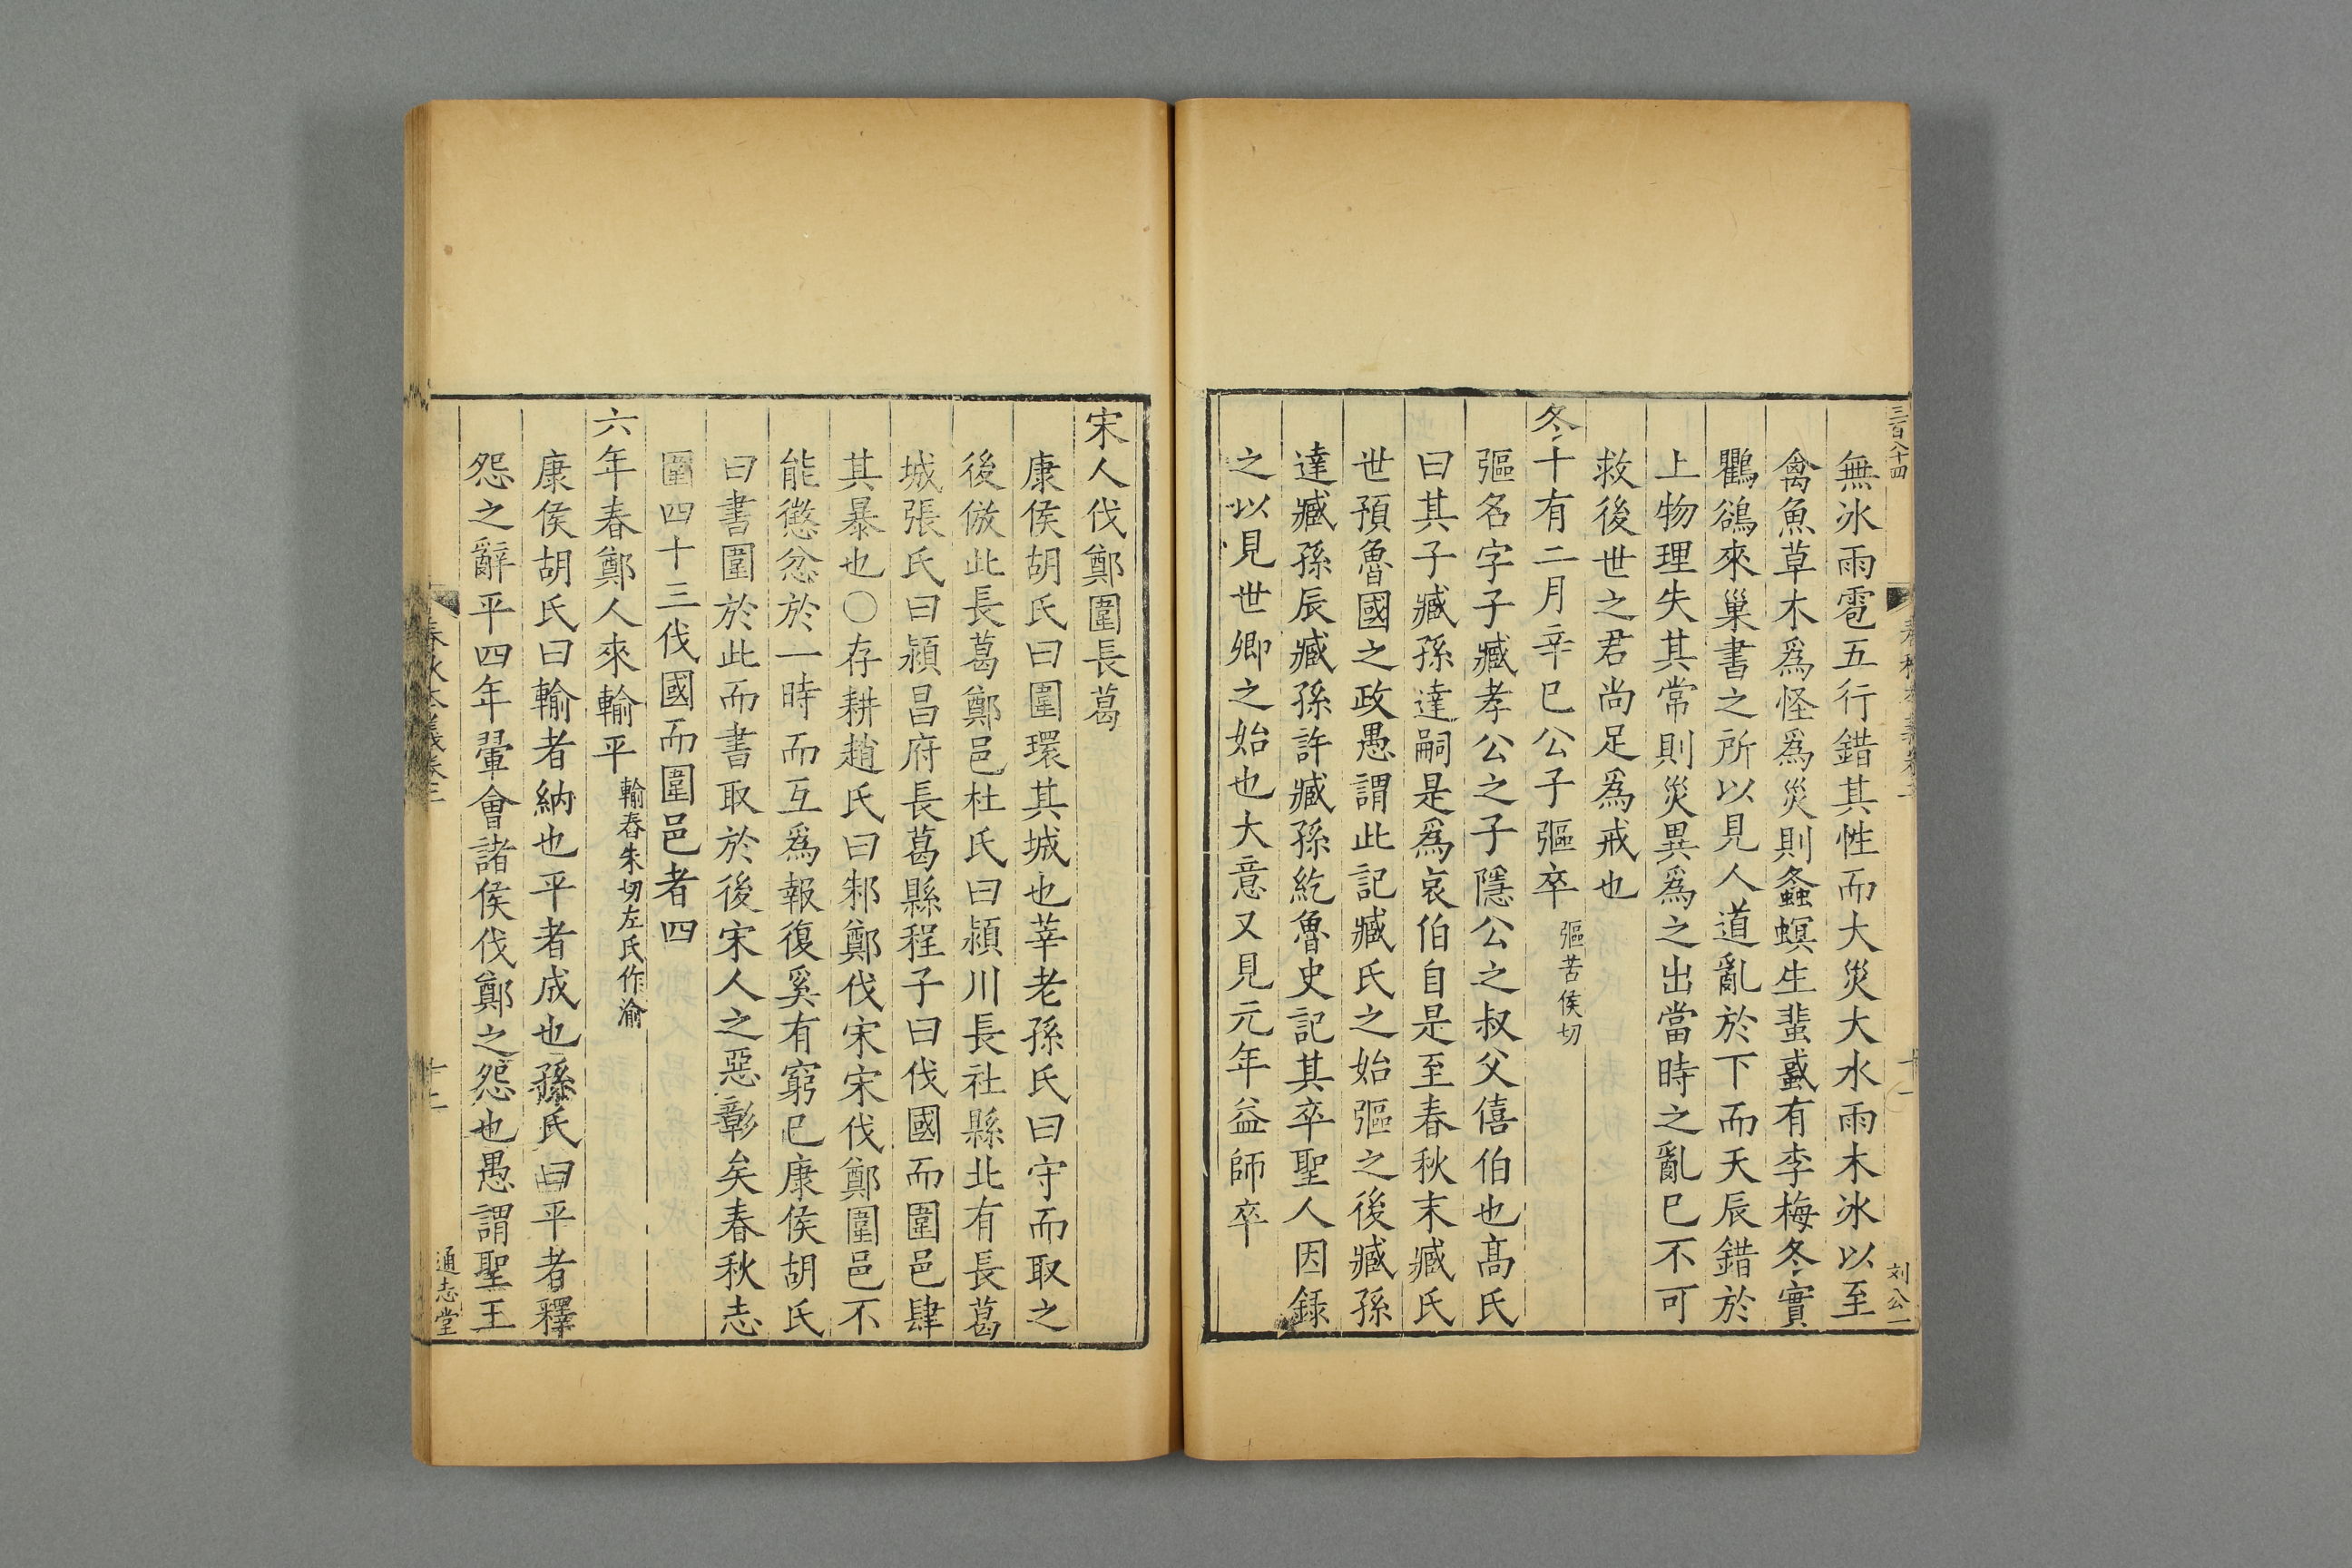 三百八十四
刘公一
無冰雨雹五行錯其性而大災大水雨木冰以至
禽魚草木爲怪爲災則螽螟生蜚䘌有李梅冬實
鸜鵒來巢書之所以見人道亂於下而天辰錯於
上物理失其常則災異爲之出當時之亂已不可
救後世之君尚足爲戒也
冬十有二月辛巳公子彄卒彄苦侯切
彄名字子臧孝公之子隱公之叔父僖伯也高氏
曰其子臧孫達嗣是爲哀伯自是至春秋末臧氏
世預魯國之政愚謂此記臧氏之始彄之後臧孫
達臧孫辰臧孫許臧孫紇魯史記其卒聖人因錄
之以見世卿之始也大意又見元年益師卒
宋人伐鄭圍長葛
康侯胡氏曰圍環其城也莘老孫氏曰守而取之
後倣此長葛鄭邑杜氏曰潁川長社縣北有長葛
城張氏曰潁昌府長葛縣程子曰伐國而圍邑肆
其暴也○存耕趙氏曰邾鄭伐宋宋伐鄭圍邑不
能懲忿於一時而互爲報復奚有窮已康侯胡氏
曰書圍於此而書取於後宋人之惡彰矣春秋志
圍四十三伐國而圍邑者四
六年春鄭人來輸平輸舂朱切左氏作渝
康侯胡氏曰輸者納也平者成也孫氏曰平者釋
怨之辭平四年翬會諸侯伐鄭之怨也愚謂聖王
春秋本義卷三
十二
通志堂